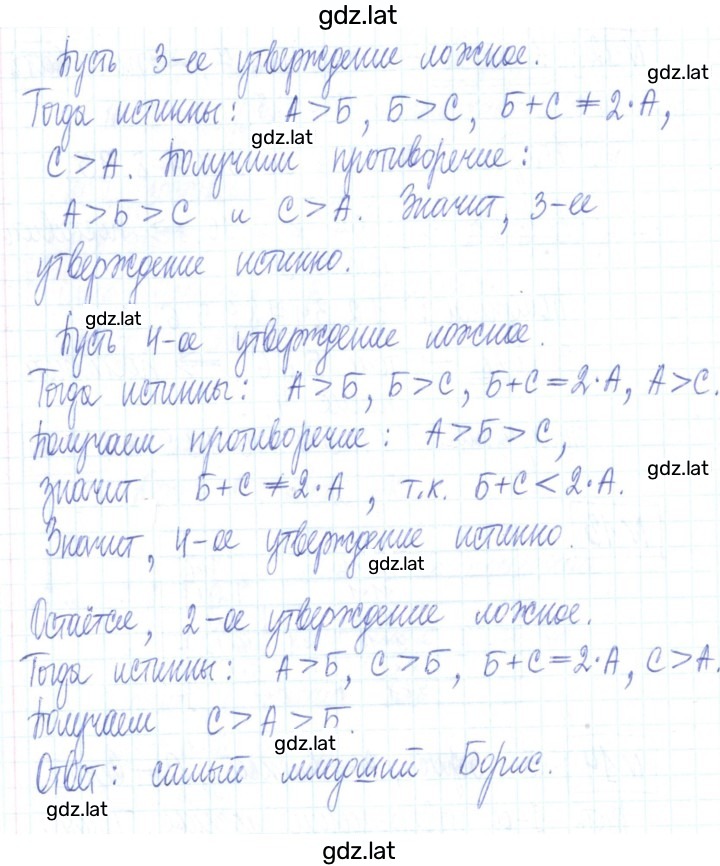 gdz.lat
Пусть 3-ее утверждение ложное.
gdz.lat
Тогда истинны: А > Б, Б > С, Б + С ≠ 2·А,
gdz.lat
С > А. Получили противоречие:
А > Б > С и С > А. Значит, 3-ее
утверждение истинно.
gdz.lat
Пусть 4-ое утверждение ложное.
Тогда истинны: А > Б, Б > С, Б + С = 2·А, А > С.
Получаем противоречие: А > Б > С,
gdz.lat
значит Б + С ≠ 2·А, т.к. Б + С < 2·А.
Значит, 4-ое утверждение истинно.
gdz.lat
Остаётся, 2-ое утверждение ложное.
Тогда истинны: А > Б, С > Б, Б + С = 2·А, С > А.
Получаем С > А > Б.
gdz.lat
Ответ: самый младший Борис.
gdz.lat
gdz.lat